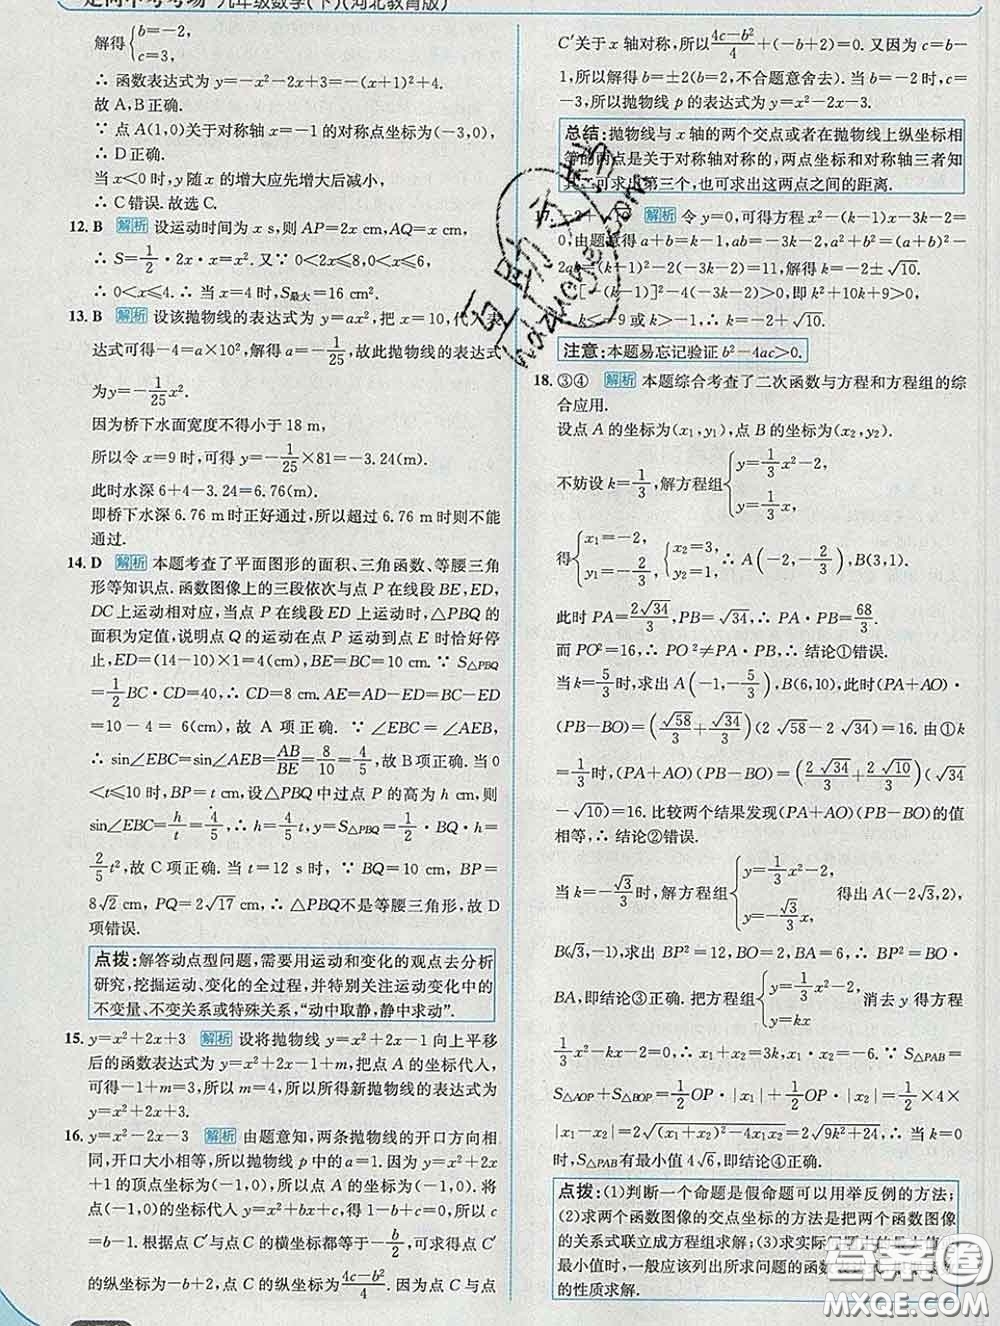 走向中考考场 九年级数学(下)(河北教育版)
解得{b=-2, c=3,
∴ 函数表达式为 y=-x²-2x+3=-(x+1)²+4.
故 A,B 正确.
∵ 点 A(1,0)关于对称轴 x=-1 的对称点坐标为(-3,0),
∴ D 正确.
当 x<0 时,y 随 x 的增大应先增大后减小,
∴ C 错误. 故选 C.
12. B 解析 设运动时间为 x s,则 AP=2x cm,AQ=x cm,
∴ S=1/2·2x·x=x². 又∵ 0<2x≤8,0<x≤6,
∴ 0<x≤4. ∴ 当 x=4 时,S最大=16 cm².
13. B 解析 设该抛物线的表达式为 y=ax²,把 x=10,代入表
达式可得-4=a×10²,解得 a=-1/25,故此抛物线的表达式
为 y=-1/25x².
因为桥下水面宽度不得小于 18 m,
所以令 x=9 时,可得 y=-1/25×81=-3.24(m).
此时水深 6+4-3.24=6.76(m).
即桥下水深 6.76 m 时正好通过,所以超过 6.76 m 时则不能
通过.
14. D 解析 本题考查了平面图形的面积、三角函数、等腰三角
形等知识点. 函数图像上的三段依次与点 P 在线段 BE,ED,
DC 上运动相对应,当点 P 在线段 ED 上运动时,△PBQ 的
面积为定值,说明点 Q 的运动在点 P 运动到点 E 时恰好停
止,ED=(14-10)×1=4(cm),BE=BC=10 cm. ∵ S△PBQ
=1/2BC·CD=40,∴ CD=8 cm. AE=AD-ED=BC-ED
=10-4=6(cm),故 A 项正确. ∵ ∠EBC=∠AEB,
∴ sin∠EBC=sin∠AEB=AB/BE=8/10=4/5,故 B 项正确. 当 0
<t≤10 时,BP=t cm,设△PBQ 中过点 P 的高为 h cm,则
sin∠EBC=h/t=4/5,∴ h=4/5t,y=S△PBQ=1/2·BQ·h=
2/5t²,故 C 项正确. 当 t=12 s 时,∵ BQ=10 cm,BP=
8√2 cm,PQ=2√17 cm,∴ △PBQ 不是等腰三角形,故 D
项错误.
点拨:解答动点型问题,需要用运动和变化的观点去分析
研究,挖掘运动、变化的全过程,并特别关注运动变化中的
不变量、不变关系或特殊关系,“动中取静,静中求动”.
15. y=x²+2x+3 解析 设将抛物线 y=x²+2x-1 向上平移
后的函数表达式为 y=x²+2x-1+m,把点 A 的坐标代入,
可得-1+m=3,所以 m=4,所以所得新抛物线的表达式为
y=x²+2x+3.
16. y=x²-2x-3 解析 由题意知,两条抛物线的开口方向相
同,开口大小相等,所以抛物线 p 中的 a=1. 因为 y=x²+2x
+1 的顶点坐标为(-1,0),所以点 A 的坐标为(-1,0). 将
点 A 的坐标代入 y=x²+bx+c,得 1-b+c=0,所以 c
=b-1. 根据点 C′与点 C 的横坐标都等于-b/2,可求得点 C
的纵坐标为(4c-b²)/4. 因为点 C 与点
C′关于 x 轴对称,所以(4c-b²)/4+(-b+2)=0. 又因为 c=b-
1,所以解得 b=±2(b=2,不合题意舍去). 当 b=-2 时,c=
-3,所以抛物线 p 的表达式为 y=x²-2x-3.
总结:抛物线与 x 轴的两个交点或者在抛物线上纵坐标相
等的两点是关于对称轴对称的,两点坐标和对称轴三者知
其二可求出第三个,也可求出这两点之间的距离.
17. -2+√10 解析 令 y=0,可得方程 x²-(k-1)x-3k-2=
0,由题意得 a+b=k-1,ab=-3k-2,∴ a²+b²=(a+b)²-
2ab=(k-1)²-2(-3k-2)=11,解得 k=-2±√10.
[-(k-1)]²-4(-3k-2)>0,即 k²+10k+9>0,
k<-9 或 k>-1,∴ k=-2+√10.
注意:本题易忘记验证 b²-4ac>0.
18. ③④ 解析 本题综合考查了二次函数与方程和方程组的综
合应用.
设点 A 的坐标为(x₁,y₁),点 B 的坐标为(x₂,y₂).
不妨设 k=1/3,解方程组{y=1/3x²-2, y=1/3x,
得{x₁=-2, y₁=-2/3, {x₂=3, y₂=1,∴ A(-2,-2/3),B(3,1).
此时 PA=2√34/3,PB=√34,∴ PA·PB=68/3.
而 PO²=16,∴ PO²≠PA·PB,∴ 结论①错误.
当 k=5/3时,求出 A(-1,-5/3),B(6,10),此时(PA+AO)·
(PB-BO)=(√58/3+√34/3)(2√58-2√34)=16. 由①k
=1/3时,(PA+AO)(PB-BO)=(2√34/3+2√10/3)(√34
-√10)=16. 比较两个结果发现(PA+AO)(PB-BO)的值
相等,∴ 结论②错误.
当 k=-√3/3时,解方程组{y=1/3x²-2, y=-√3/3x, 得出 A(-2√3,2)
B(√3,-1),求出 BP²=12,BO=2,BA=6,∴ BP²=BO·
BA,即结论③正确. 把方程组{y=1/3x²-2, y=kx 消去 y 得方程
1/3x²-kx-2=0,∴ x₁+x₂=3k,x₁·x₂=-6. ∵ S△PAB=
S△AOP+S△BOP=1/2OP·|x₁|+1/2OP·|x₂|=1/2×4×
|x₁-x₂|=2√((x₁+x₂)²-4x₁x₂)=2√(9k²+24),∴ 当 k=0
时,S△PAB有最小值 4√6,即结论④正确.
点拨:(1)判断一个命题是假命题可以用举反例的方法;
(2)求两个函数图像的交点坐标的方法是把两个函数图像
的关系式联立成方程组求解;(3)求实际问题中的最大值、
最小值时,一般应该列出所求问题的函数
的性质求解.
答案圈
MXQE.COM